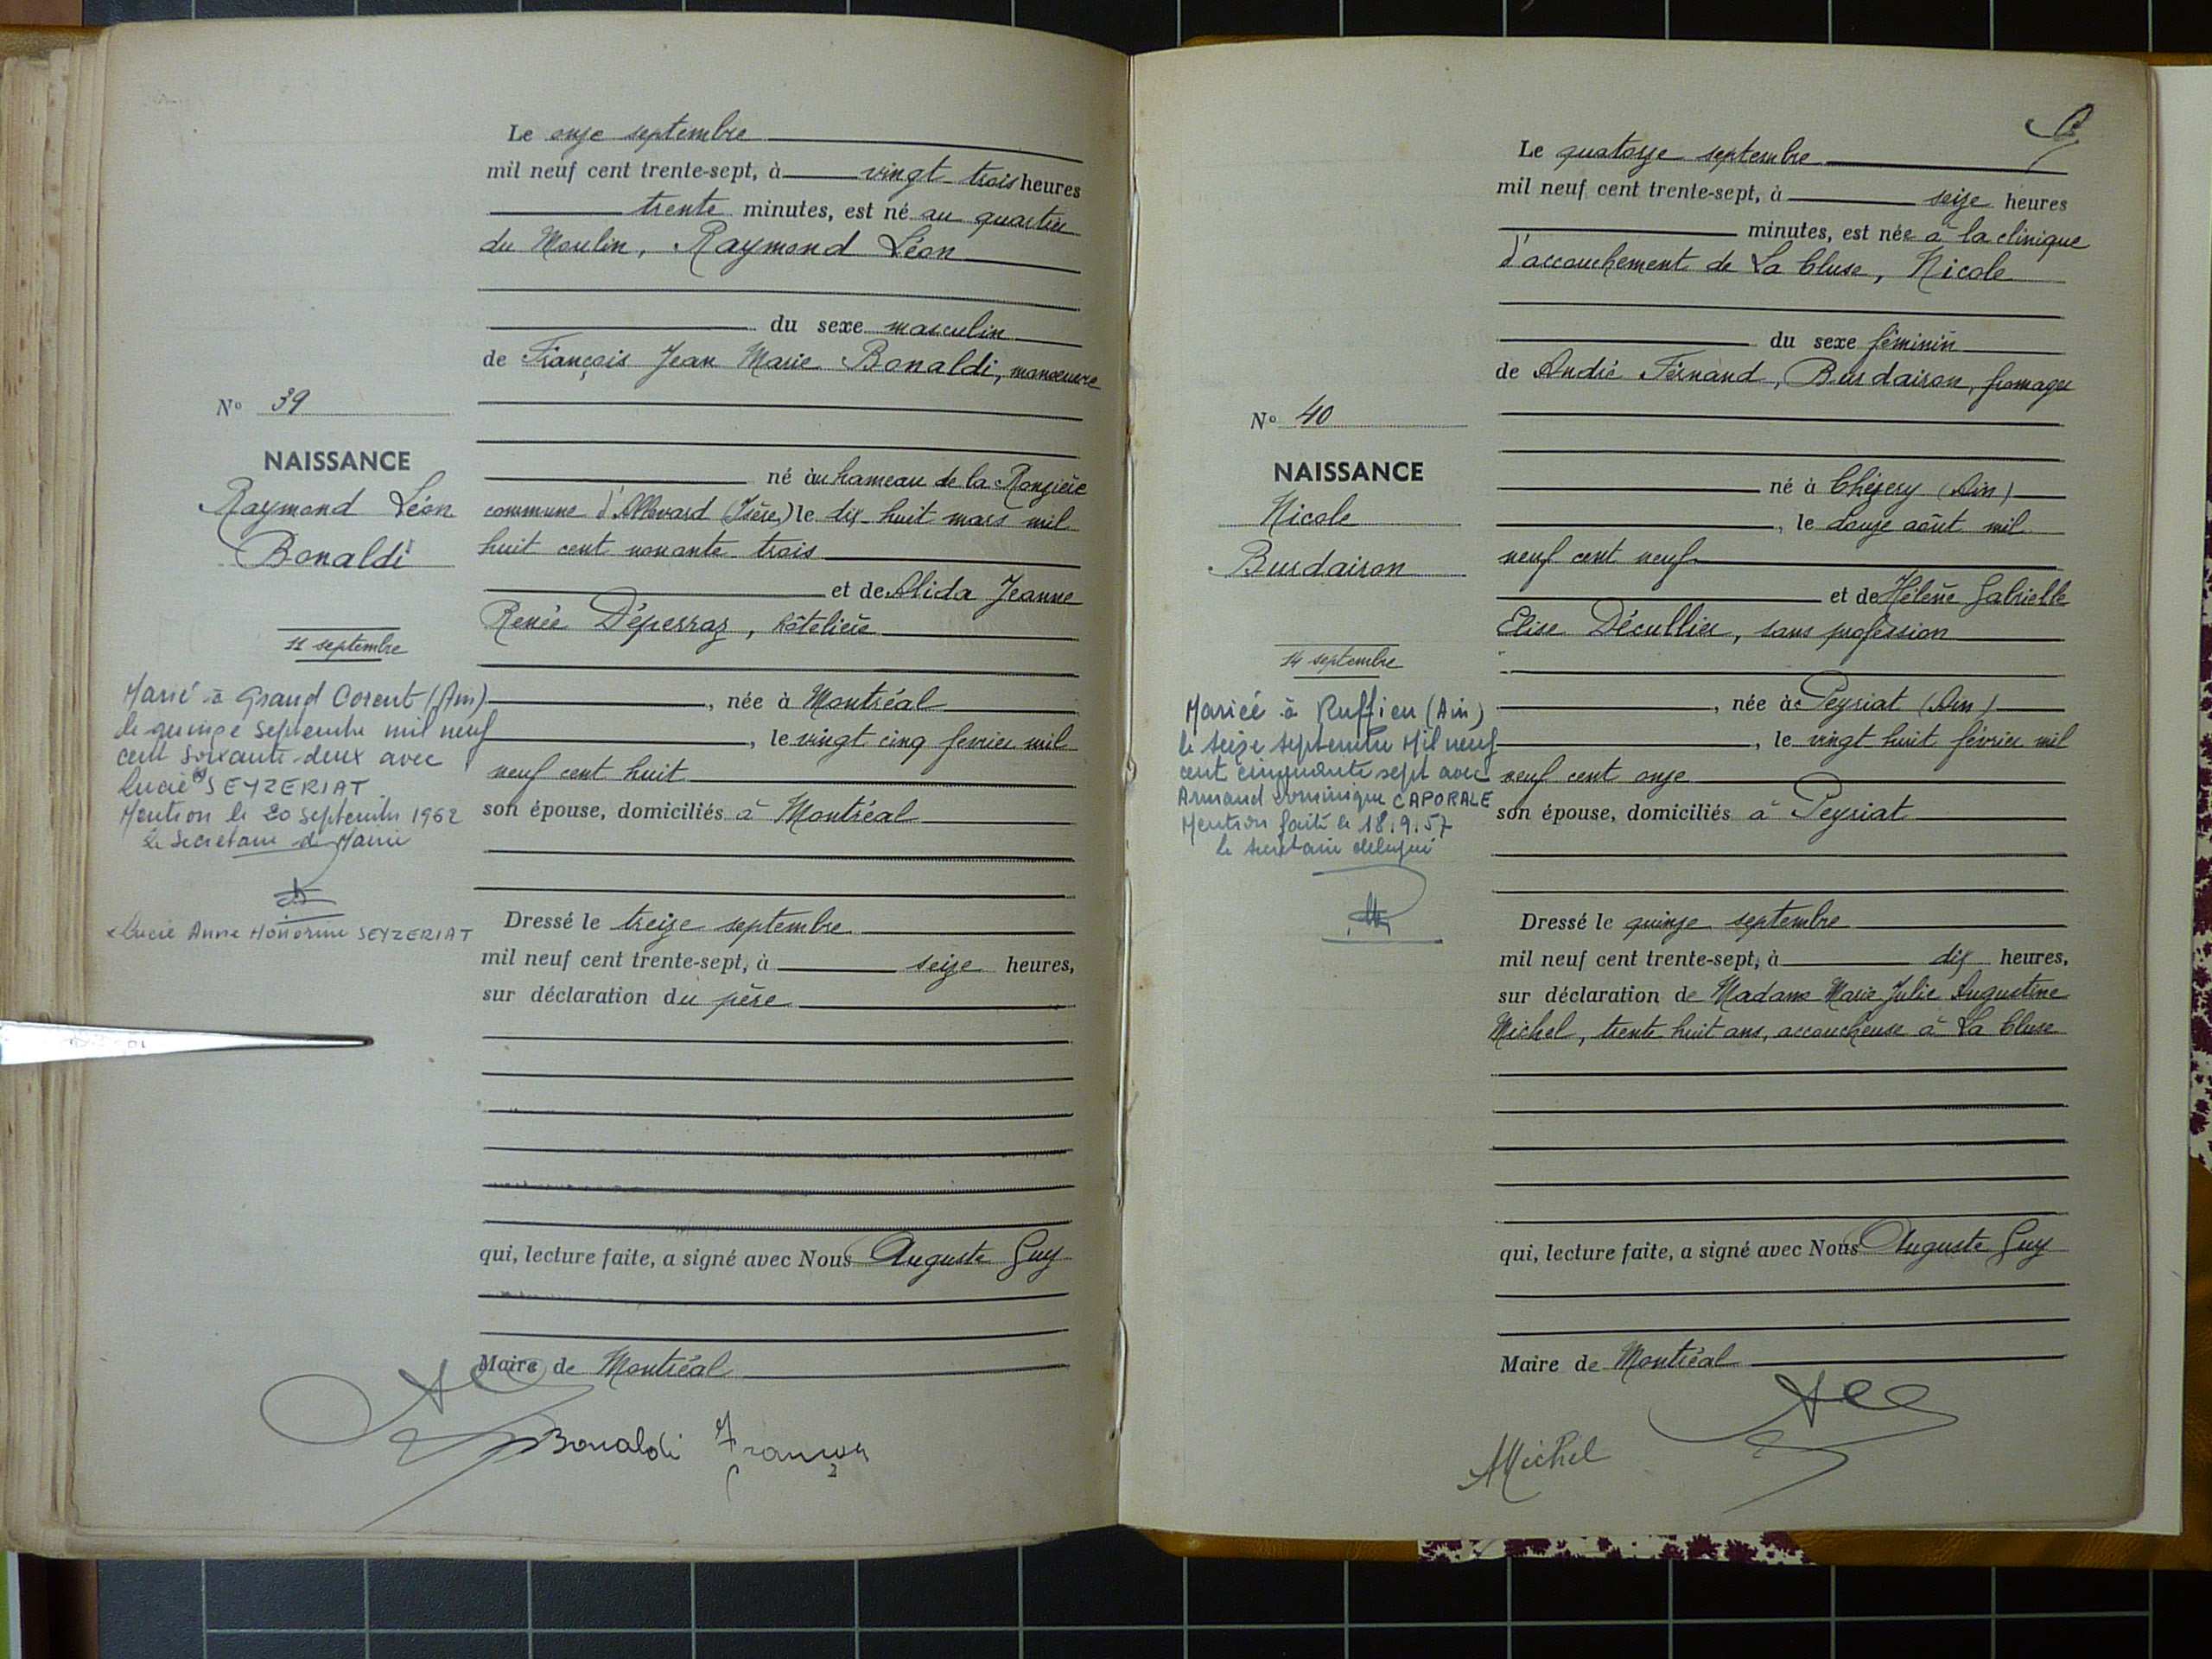 Le onze septembre
mil neuf cent trente-sept, à vingt trois heures
trente minutes, est né au quartier
du Moulin, Raymond Léon
du sexe masculin
de François Jean Marie Bonaldi, manoeuvre
N° 39
NAISSANCE
Raymond Léon
Bonaldi
11 septembre
né au hameau de la
commune d'Allevard (Isère) le dix-huit mars mil
huit cent nonante trois
et de Alida Jeanne
Renée Déperraz, hôtelière
née à Montréal
, le vingt cinq février mil
neuf cent huit
son épouse, domiciliés à Montréal
Marié à Grand Corent (Ain)
le quinze septembre mil neuf
cent soixante-deux avec
Lucie SEYZERIAT
Mention le 20 septembre 1962
le secrétaire de Mairie
x Lucie Anne Honorine SEYZERIAT
Dressé le treize septembre
mil neuf cent trente-sept, à seize heures,
sur déclaration du père
qui, lecture faite, a signé avec Nous Auguste Guy
Maire de Montréal
Bonaldi François
Le quatorze septembre
mil neuf cent trente-sept, à seize heures
minutes, est née à la clinique
d'accouchement de La Cluse, Nicole
du sexe féminin
de André Fernand, Burdairon, fromager
N° 40
NAISSANCE
Nicole
Burdairon
14 septembre
né à Chézery (Ain)
, le douze août mil
neuf cent neuf
et de Hélène Gabrielle
Elise Décullier, sans profession
, née à Peyriat (Ain)
, le vingt huit février mil
neuf cent onze
son épouse, domiciliés à Peyriat
Mariée à Ruffieu (Ain)
le seize septembre Mil neuf
cent cinquante sept avec
Armand Dominique CAPORALE
Mention faite le 18.9.57
le secrétaire délégué
Dressé le quinze septembre
mil neuf cent trente-sept, à dix heures,
sur déclaration de Madame Marie Julie Augustine
Michel, trente huit ans, accoucheuse à La Cluse
qui, lecture faite, a signé avec Nous Auguste Guy
Maire de Montréal
Michel